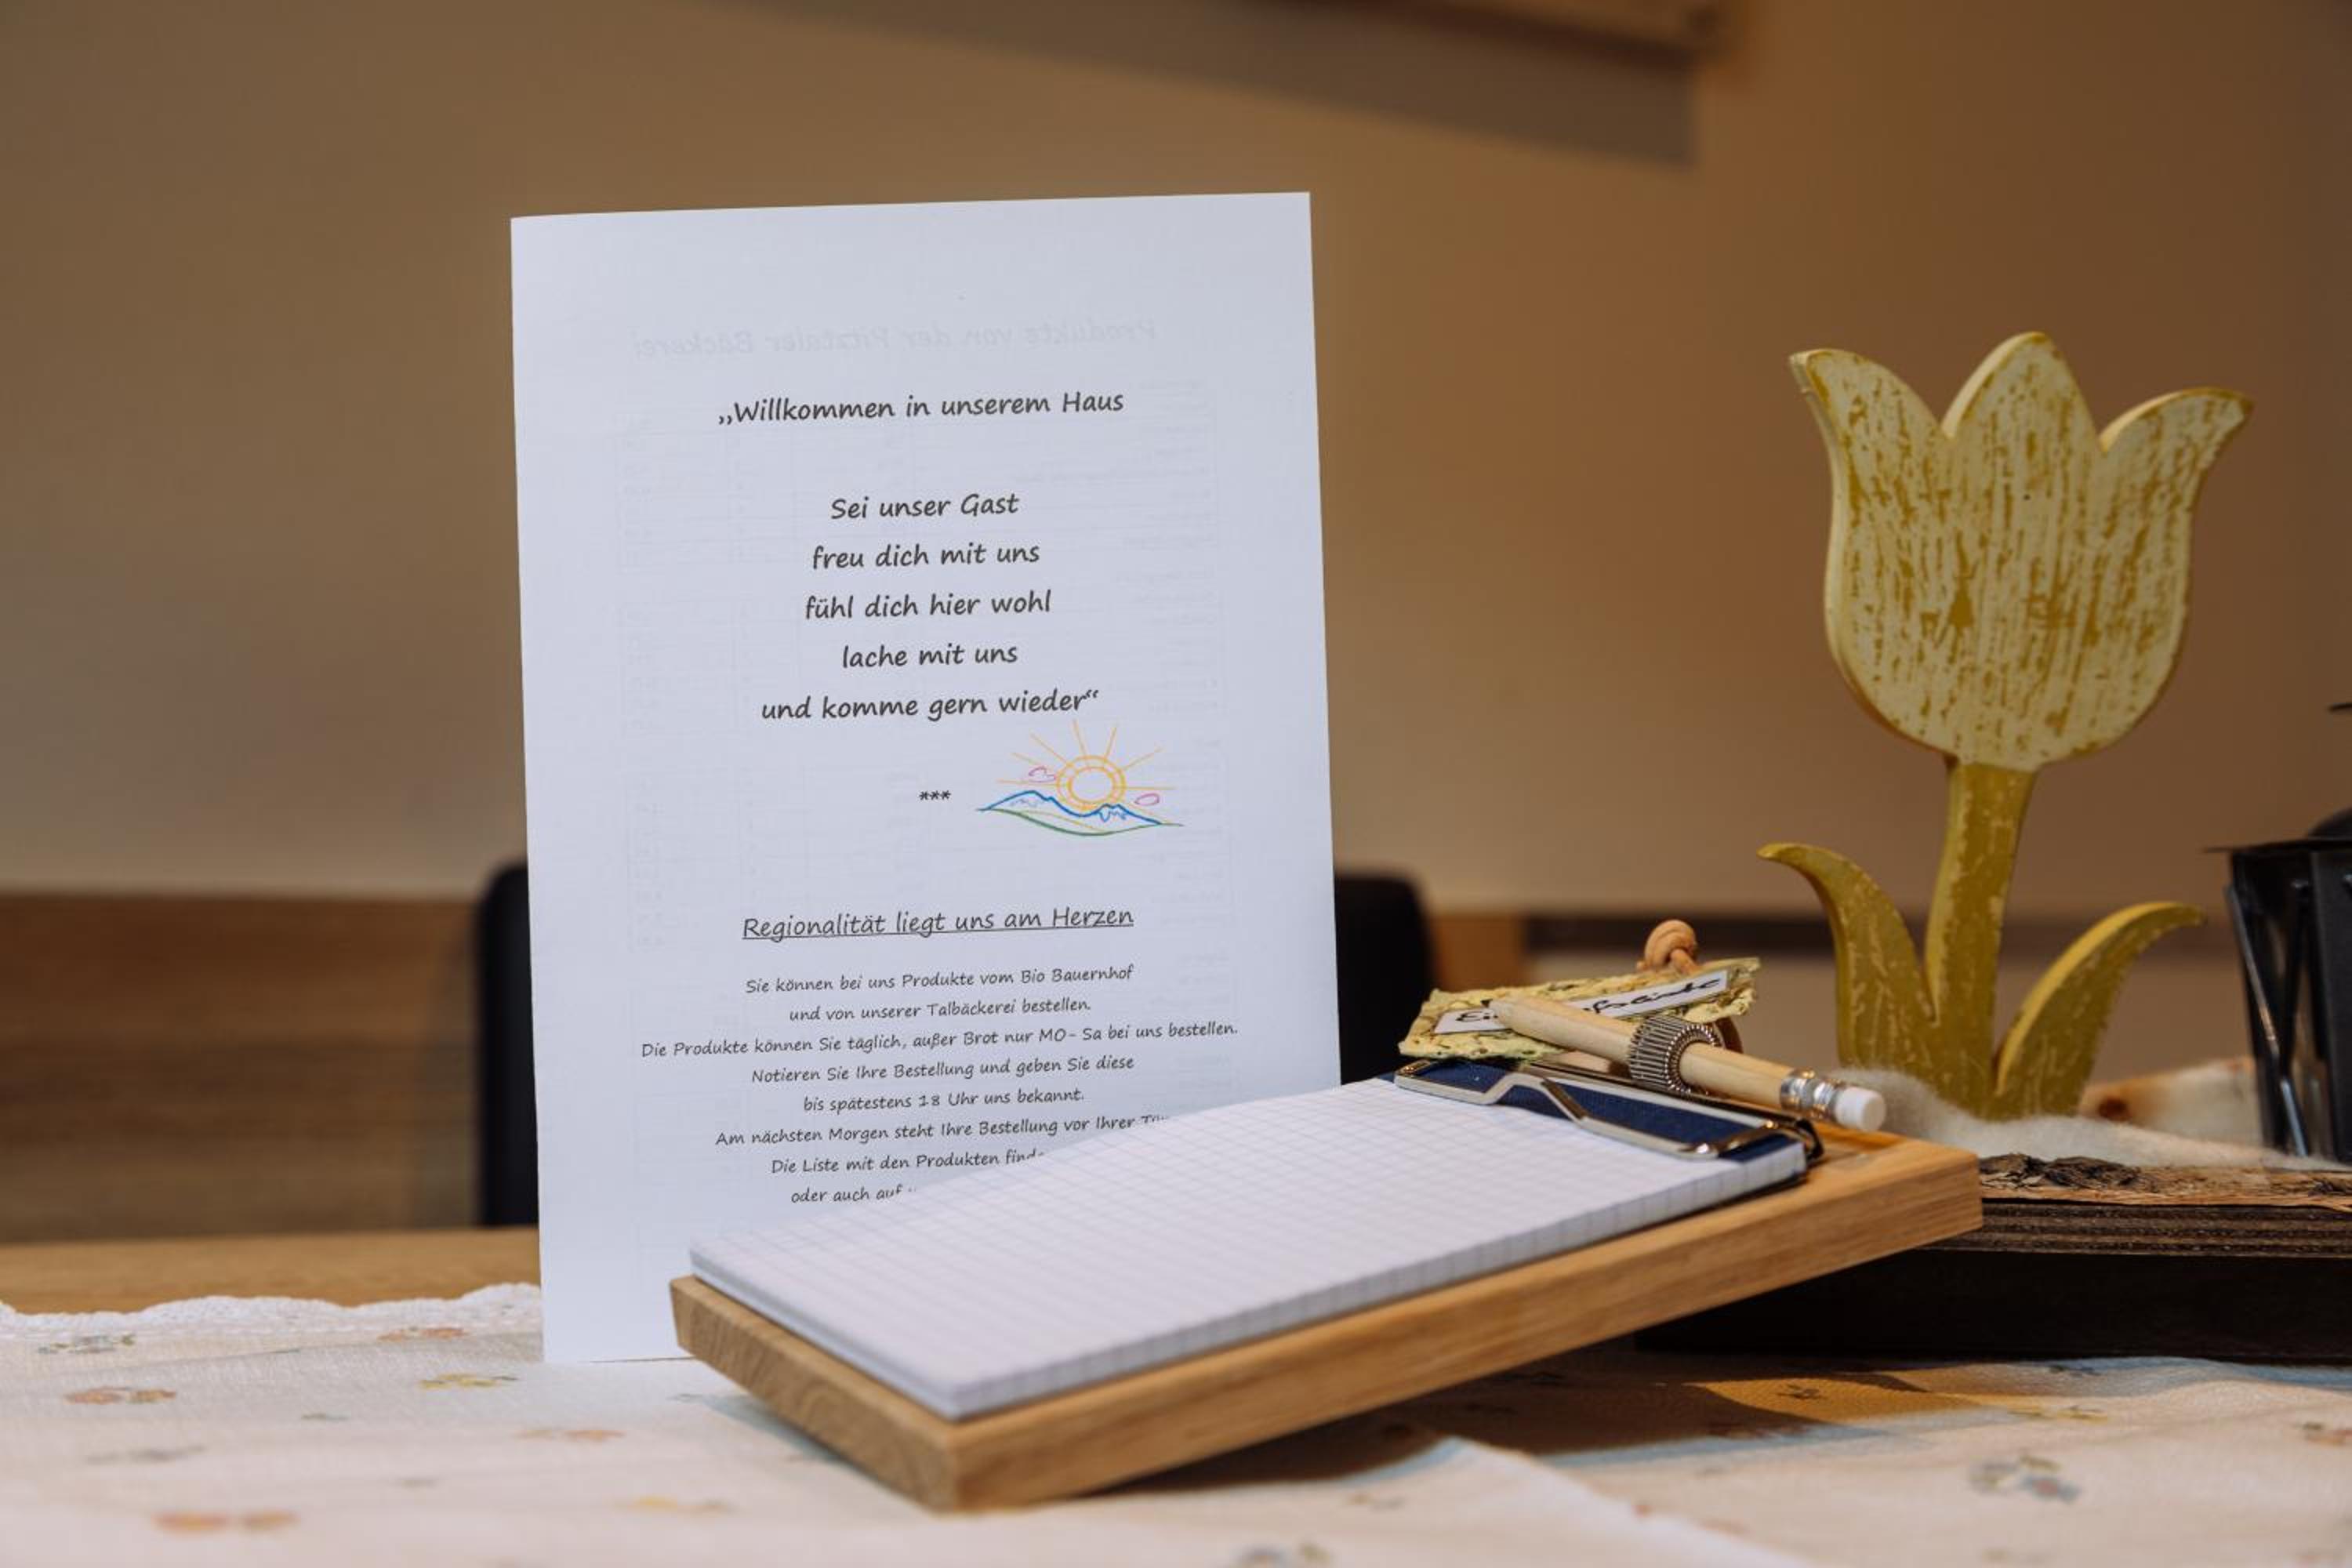 Produkte von der Pitztaler Bäckerei
„Willkommen in unserem Haus
Sei unser Gast
freu dich mit uns
fühl dich hier wohl
lache mit uns
und komme gern wieder“
***
Regionalität liegt uns am Herzen
Sie können bei uns Produkte vom Bio Bauernhof
und von unserer Talbäckerei bestellen.
Die Produkte können Sie täglich, außer Brot nur MO- Sa bei uns bestellen.
Notieren Sie Ihre Bestellung und geben Sie diese
bis spätestens 18 Uhr uns bekannt.
Am nächsten Morgen steht Ihre Bestellung vor Ihrer
Die Liste mit den Produkten
oder auch auf